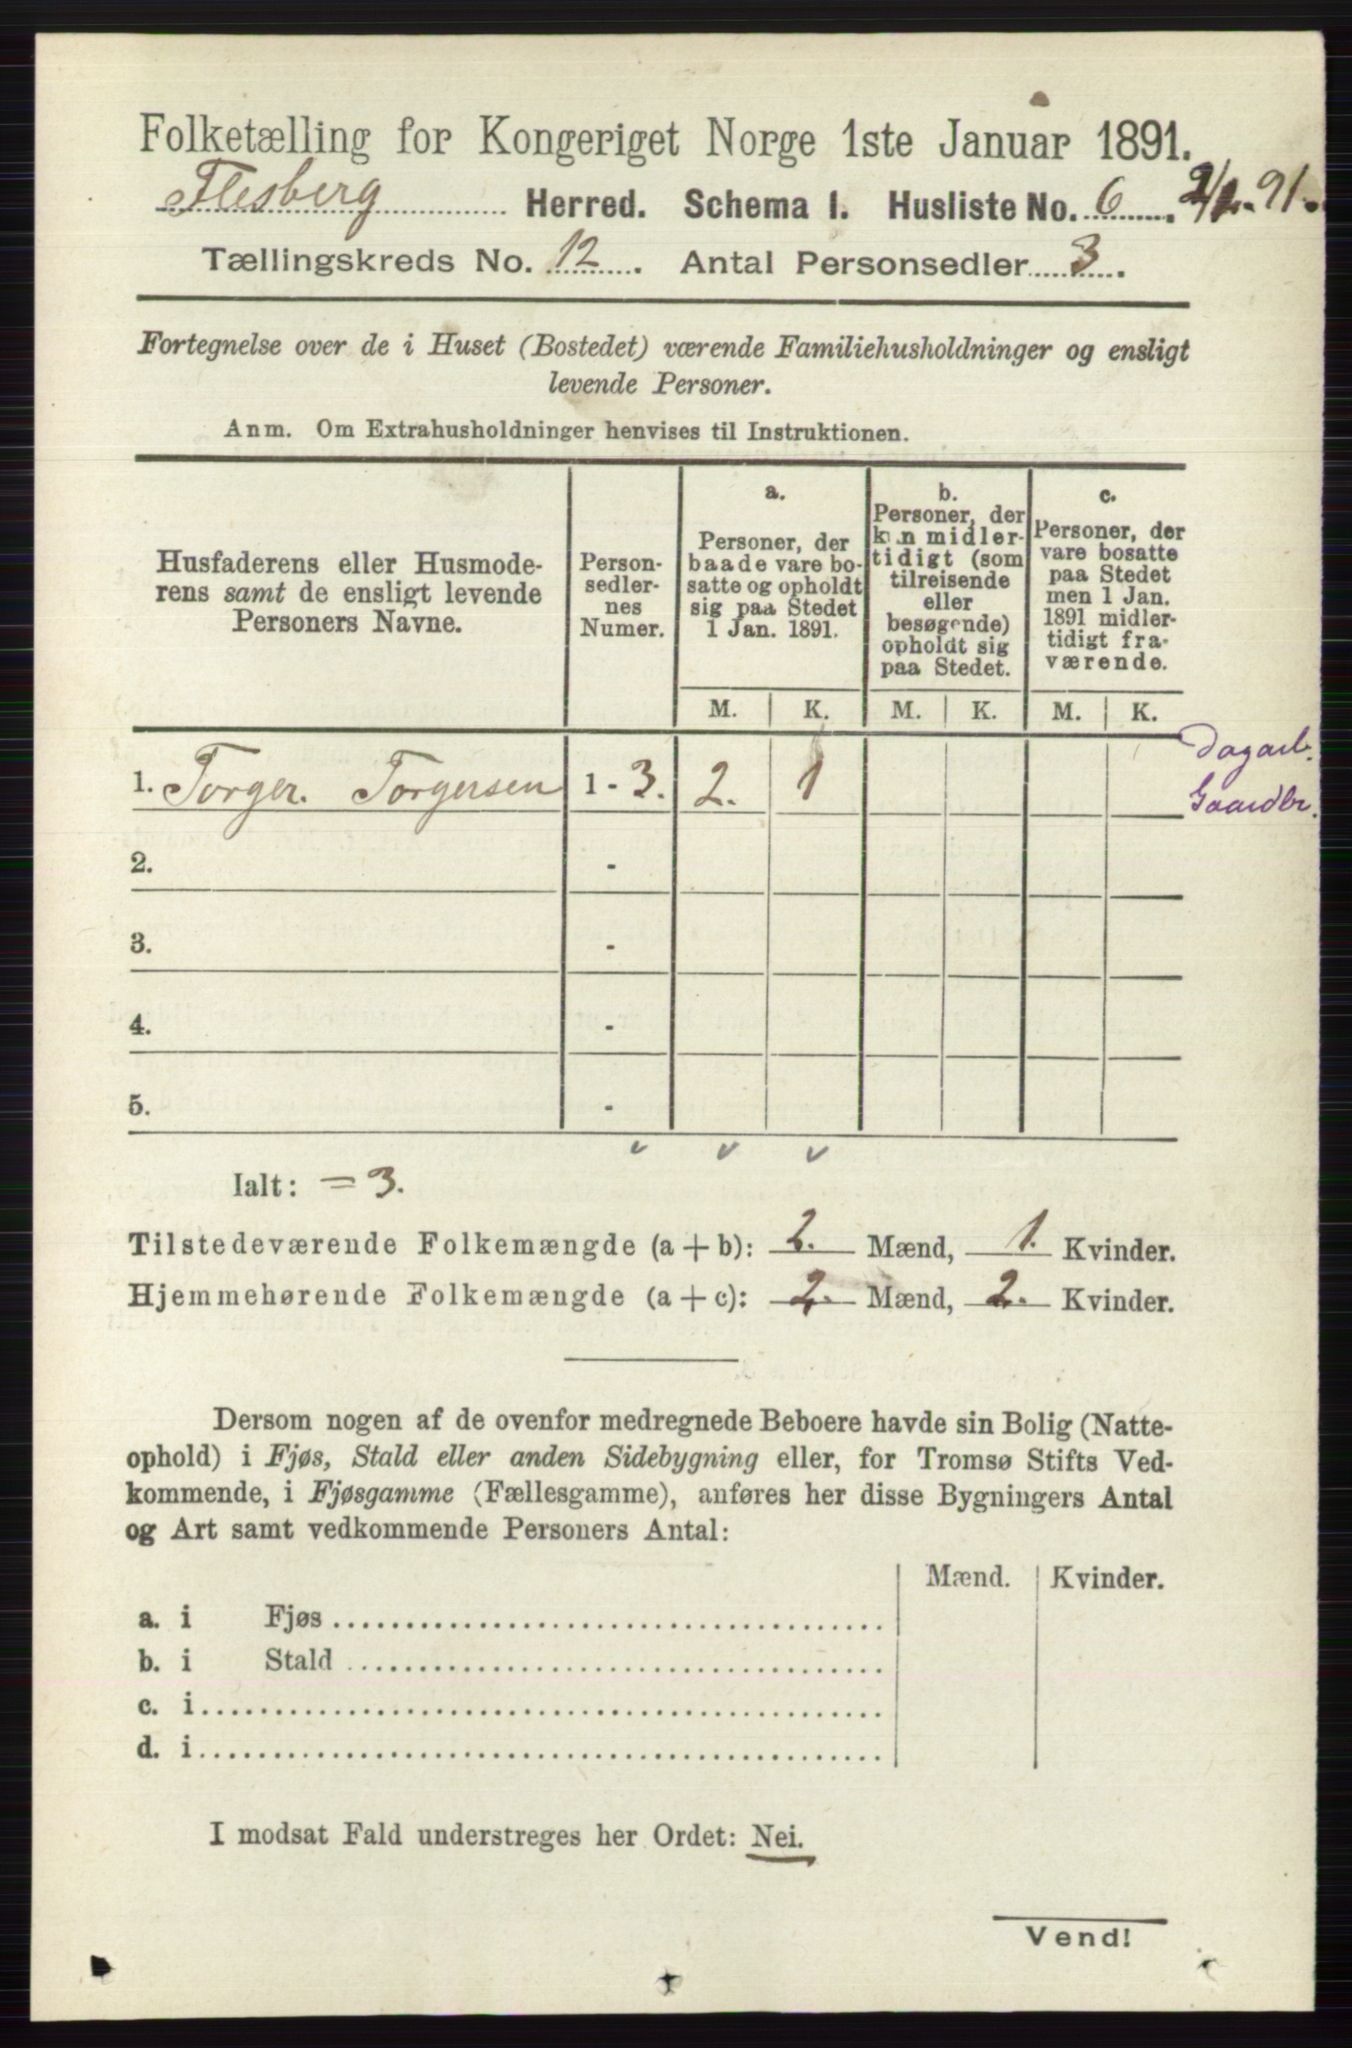 Folketælling for Kongeriget Norge 1ste Januar 1891.
Flesberg Herred. Schema I. Husliste No. 6 2/1. 91.
Tællingskreds No. 12. Antal Personsedler 3.
Fortegnelse over de i Huset (Bostedet) værende Familiehusholdninger og ensligt
levende Personer.
Anm. Om Extrahusholdninger henvises til Instruktionen.
Husfaderens eller Husmode-
rens samt de ensligt levende
Personers Navne.
Person-
sedler-
nes
Numer.
a.
Personer, der
baade vare bo-
satte og opholdt
sig paa Stedet
1 Jan. 1891.
b.
Personer, der
kun midler-
tidigt (som
tilreisende
eller
besøgende)
opholdt sig
paa Stedet.
c.
Personer, der
vare bosatte
paa Stedet
men 1 Jan.
1891 midler-
tidigt fra-
værende.
M. K. M. K. M. K.
Dagarb.
1. Torger. Torgersen 1 - 3. 2. 1 Gaardbr.
2. -
3. -
4. -
5. -
Ialt: = 3.
Tilstedeværende Folkemængde (a + b): 2. Mænd, 1. Kvinder.
Hjemmehørende Folkemængde (a + c): 2. Mænd, 2. Kvinder.
Dersom nogen af de ovenfor medregnede Beboere havde sin Bolig (Natte-
ophold) i Fjøs, Stald eller anden Sidebygning eller, for Tromsø Stifts Ved-
kommende, i Fjøsgamme (Fællesgamme), anføres her disse Bygningers Antal
og Art samt vedkommende Personers Antal:
Mænd. Kvinder.
a. i Fjøs
b. i Stald
c. i
d. i
I modsat Fald understreges her Ordet: Nei.
Vend!